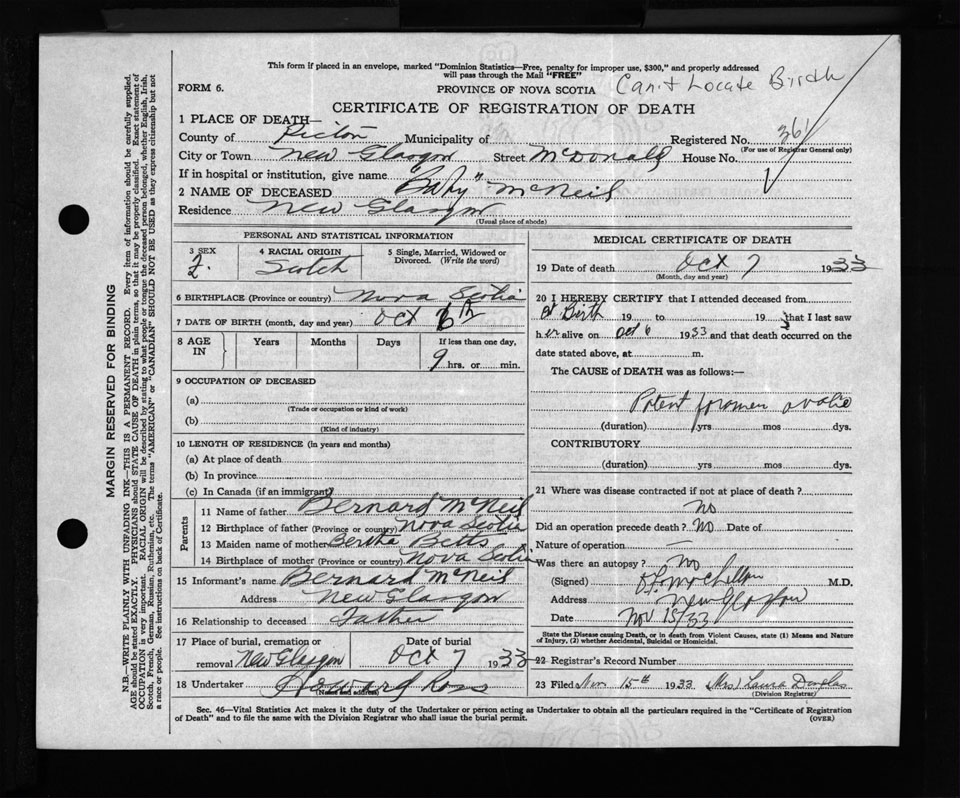 This form if placed in an envelope, marked "Dominion Statistics—Free, penalty for improper use, $300," and properly addressed
will pass through the Mail "FREE"
FORM 6.
PROVINCE OF NOVA SCOTIA
Can't Locate Birth
CERTIFICATE OF REGISTRATION OF DEATH
1 PLACE OF DEATH—
County of Pictou Municipality of Registered No. 361
(For use of Registrar General only)
City or Town New Glasgow Street McDonald House No.
If in hospital or institution, give name
2 NAME OF DECEASED "Baby" McNeil
Residence New Glasgow
(Usual place of abode)
PERSONAL AND STATISTICAL INFORMATION
3 SEX F.
4 RACIAL ORIGIN Scotch
5 Single, Married, Widowed or Divorced. (Write the word)
6 BIRTHPLACE (Province or country) Nova Scotia
7 DATE OF BIRTH (month, day and year) Oct 6th
8 AGE IN Years Months Days If less than one day, 9 hrs. or min.
9 OCCUPATION OF DECEASED
(a)
(Trade or occupation or kind of work)
(b)
(Kind of industry)
10 LENGTH OF RESIDENCE (in years and months)
(a) At place of death
(b) In province
(c) In Canada (if an immigrant)
Parents
11 Name of father Bernard McNeil
12 Birthplace of father (Province or country) Nova Scotia
13 Maiden name of mother Bertha Betts
14 Birthplace of mother (Province or country) Nova Scotia
15 Informant's name Bernard McNeil
Address New Glasgow
16 Relationship to deceased Father
17 Place of burial, cremation or removal New Glasgow
Date of burial Oct 7 1933
18 Undertaker Howard Ross
(Name and address)
MEDICAL CERTIFICATE OF DEATH
19 Date of death Oct 7 1933
(Month, day and year)
20 I HEREBY CERTIFY that I attended deceased from
at Birth 19 to 193 that I last saw
her alive on Oct 6 1933 and that death occurred on the
date stated above, at m.
The CAUSE of DEATH was as follows:—
Patent foramen ovale
(duration) yrs mos dys.
CONTRIBUTORY
(duration) yrs mos dys.
21 Where was disease contracted if not at place of death?
No
Did an operation precede death? No Date of
Nature of operation —
Was there an autopsy? No
(Signed) M.D.
Address New Glasgow
Date Nov 15/33
State the Disease causing Death, or in death from Violent Causes, state (1) Means and Nature
of Injury, (2) whether Accidental, Suicidal or Homicidal.
22 Registrar's Record Number
23 Filed Nov 15th 1933 (Mrs) Laura Douglas
(Division Registrar)
Sec. 46—Vital Statistics Act makes it the duty of the Undertaker or person acting as Undertaker to obtain all the particulars required in the "Certificate of Registration
of Death" and to file the same with the Division Registrar who shall issue the burial permit.
(OVER)
MARGIN RESERVED FOR BINDING
N.B.—WRITE PLAINLY WITH UNFADING INK—THIS IS A PERMANENT RECORD. Every item of information should be carefully supplied.
AGE should be stated EXACTLY. PHYSICIANS should STATE CAUSE OF DEATH in plain terms, so that it may be properly classified. Exact statement of
OCCUPATION is very important. RACIAL ORIGIN will be described by stating to what people or tongue the deceased person belonged, whether English, Irish,
Scotch, French, German, Russian, Ruthenian, etc. The terms "AMERICAN" or "CANADIAN" SHOULD NOT BE USED as they express citizenship but not
a race or people. See instructions on back of Certificate.